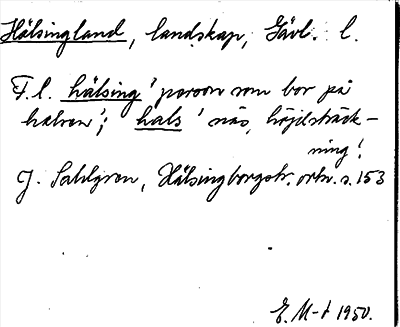 Hälsingland, landskap, Gävl. l.
F.l. hälsing 'person som bor på
halsen'; hals 'näs, höjdsträck-
ning'.
J. Sahlgren, Hälsingborgstr. ortn. s. 153
E. M-t 1950.